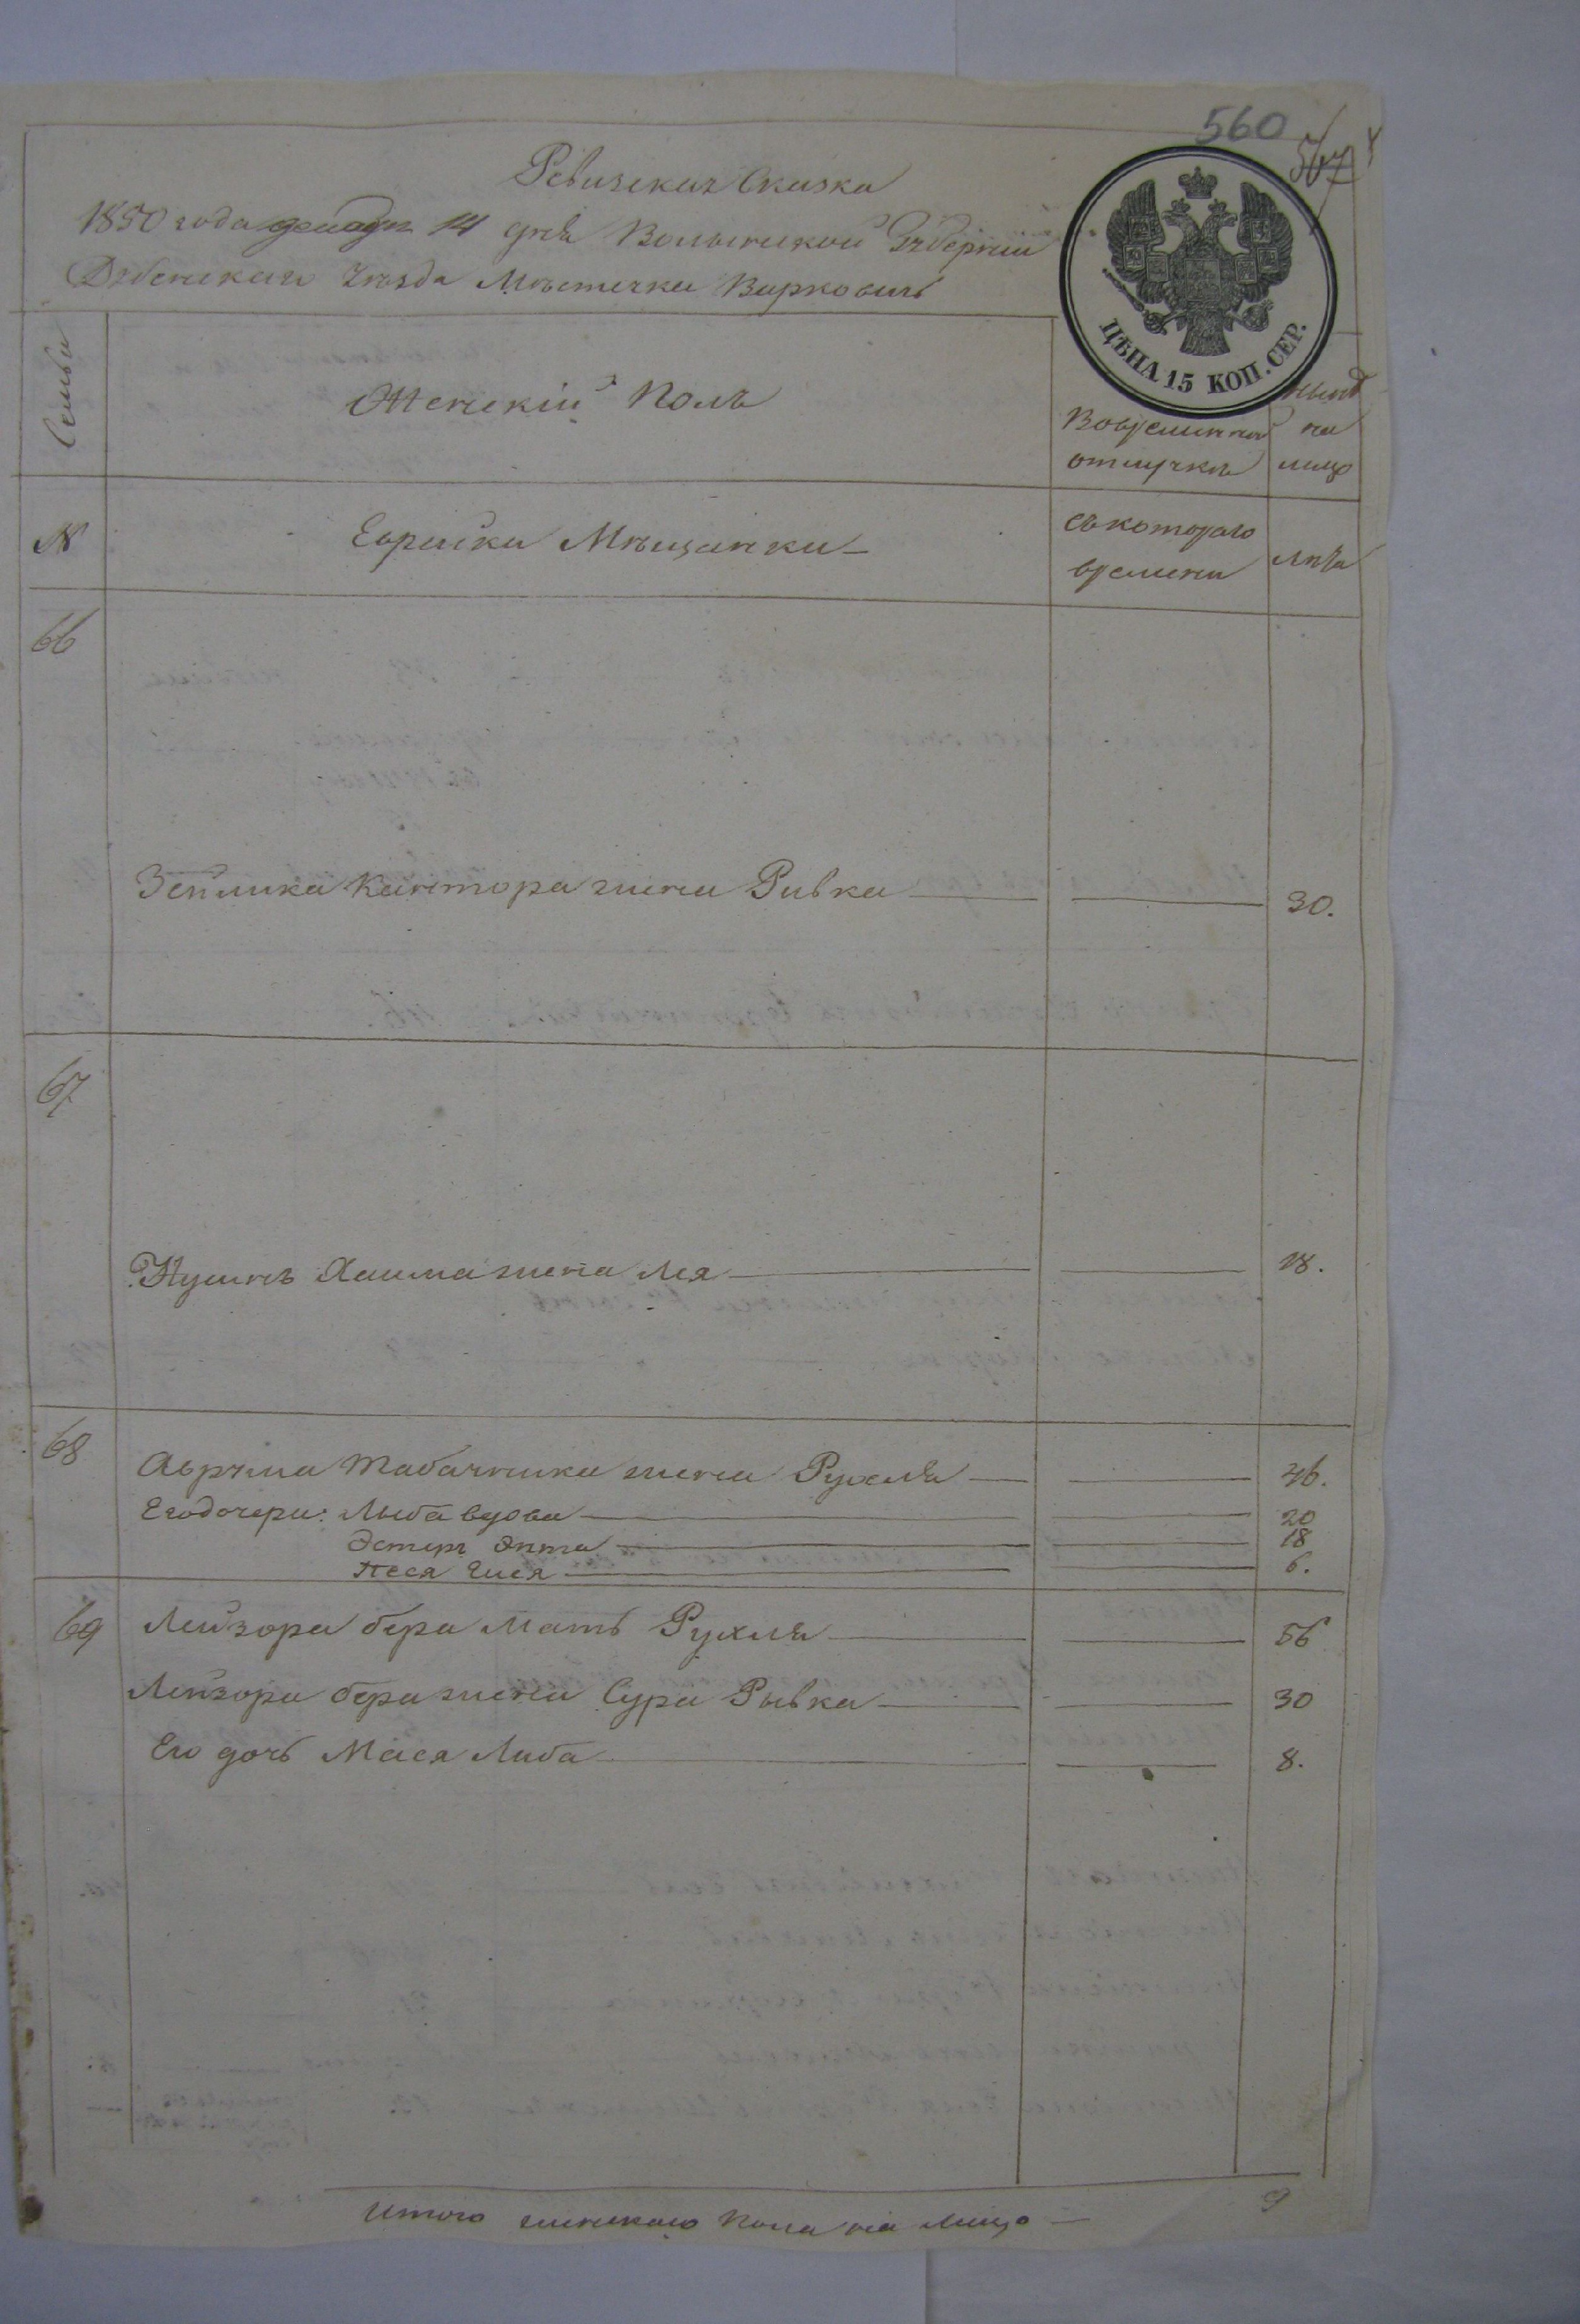 560
567
Ревизская Сказка
1850 года октября 14 дня Волынской Губерніи
Дубенскаго Уезда Мѣстечка Варковичъ
ЦѢНА 15 КОП. СЕР.
Семьи
Женскій Полъ
Во временной отлучкѣ
ныне на лицо
№
Еврейки Мѣщанки
Съ котораго времени
лѣта
66
Зейлика Кантора жена Ривка 30.
67
Хаима жена Лея 18.
68
Аврума Табачника жена Рухля 46.
Его дочери: Лыба вдова 20
Эстеръ Энта 18
Песя Гися 6.
69
Лейзора бера Мать Рухля 56
Лейзора бера жена Сура Рывка 30
Его дочь Мася Либа 8.
Итого женскаго пола на Лицо 9